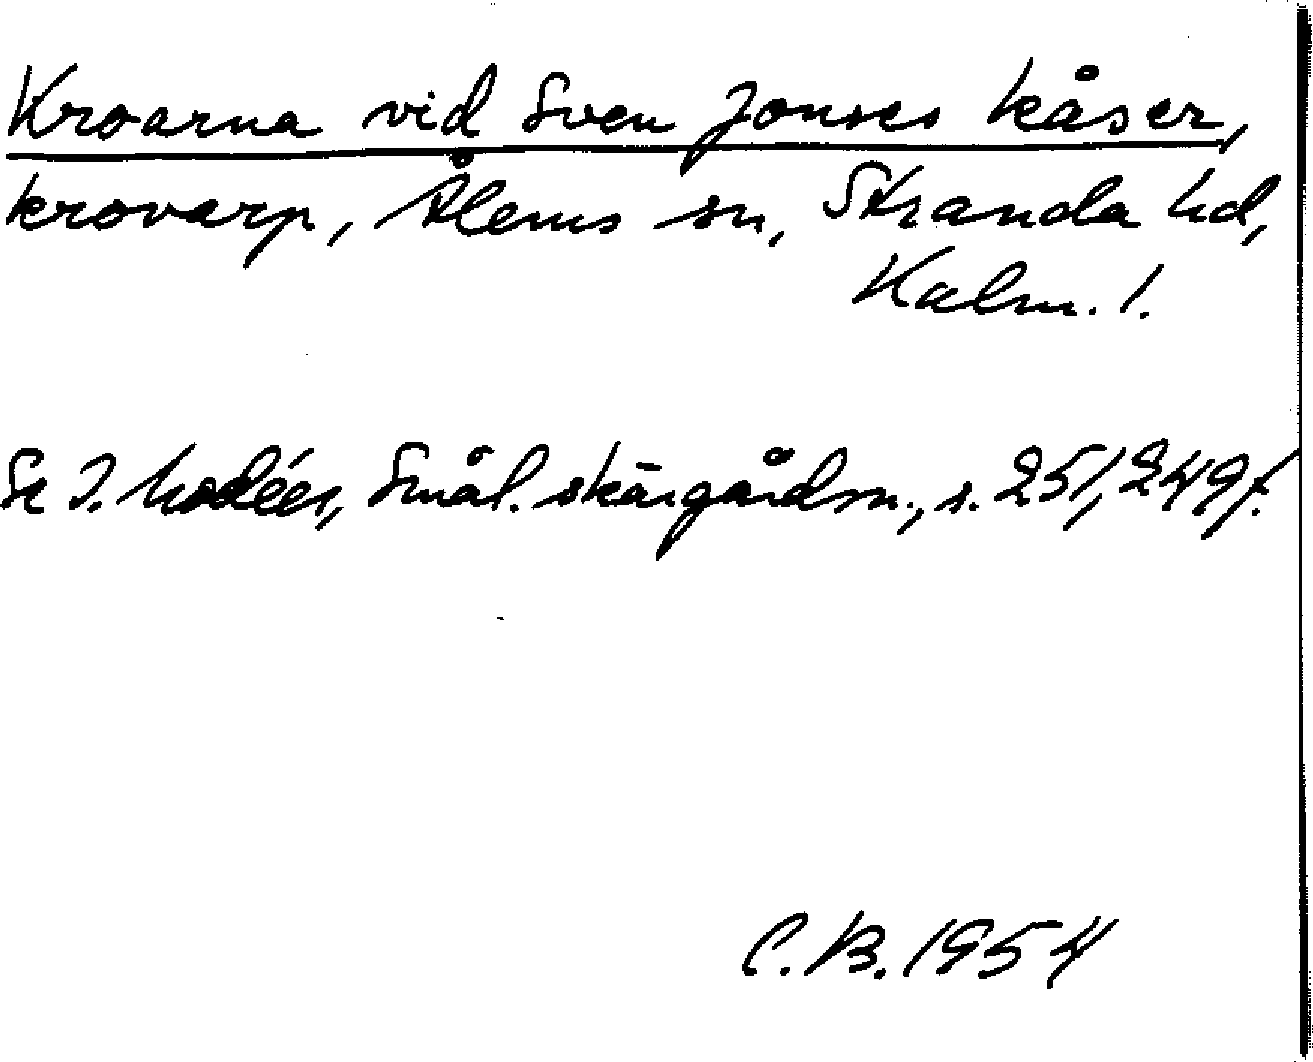 Kroarna vid Sven Jonses kåser,
krovarp, Ålems sn, Stranda hd,
Kalm. l.
Se I. Modéer, Smål. skärgårdsn., s. 251, 249f.
C.B. 1954